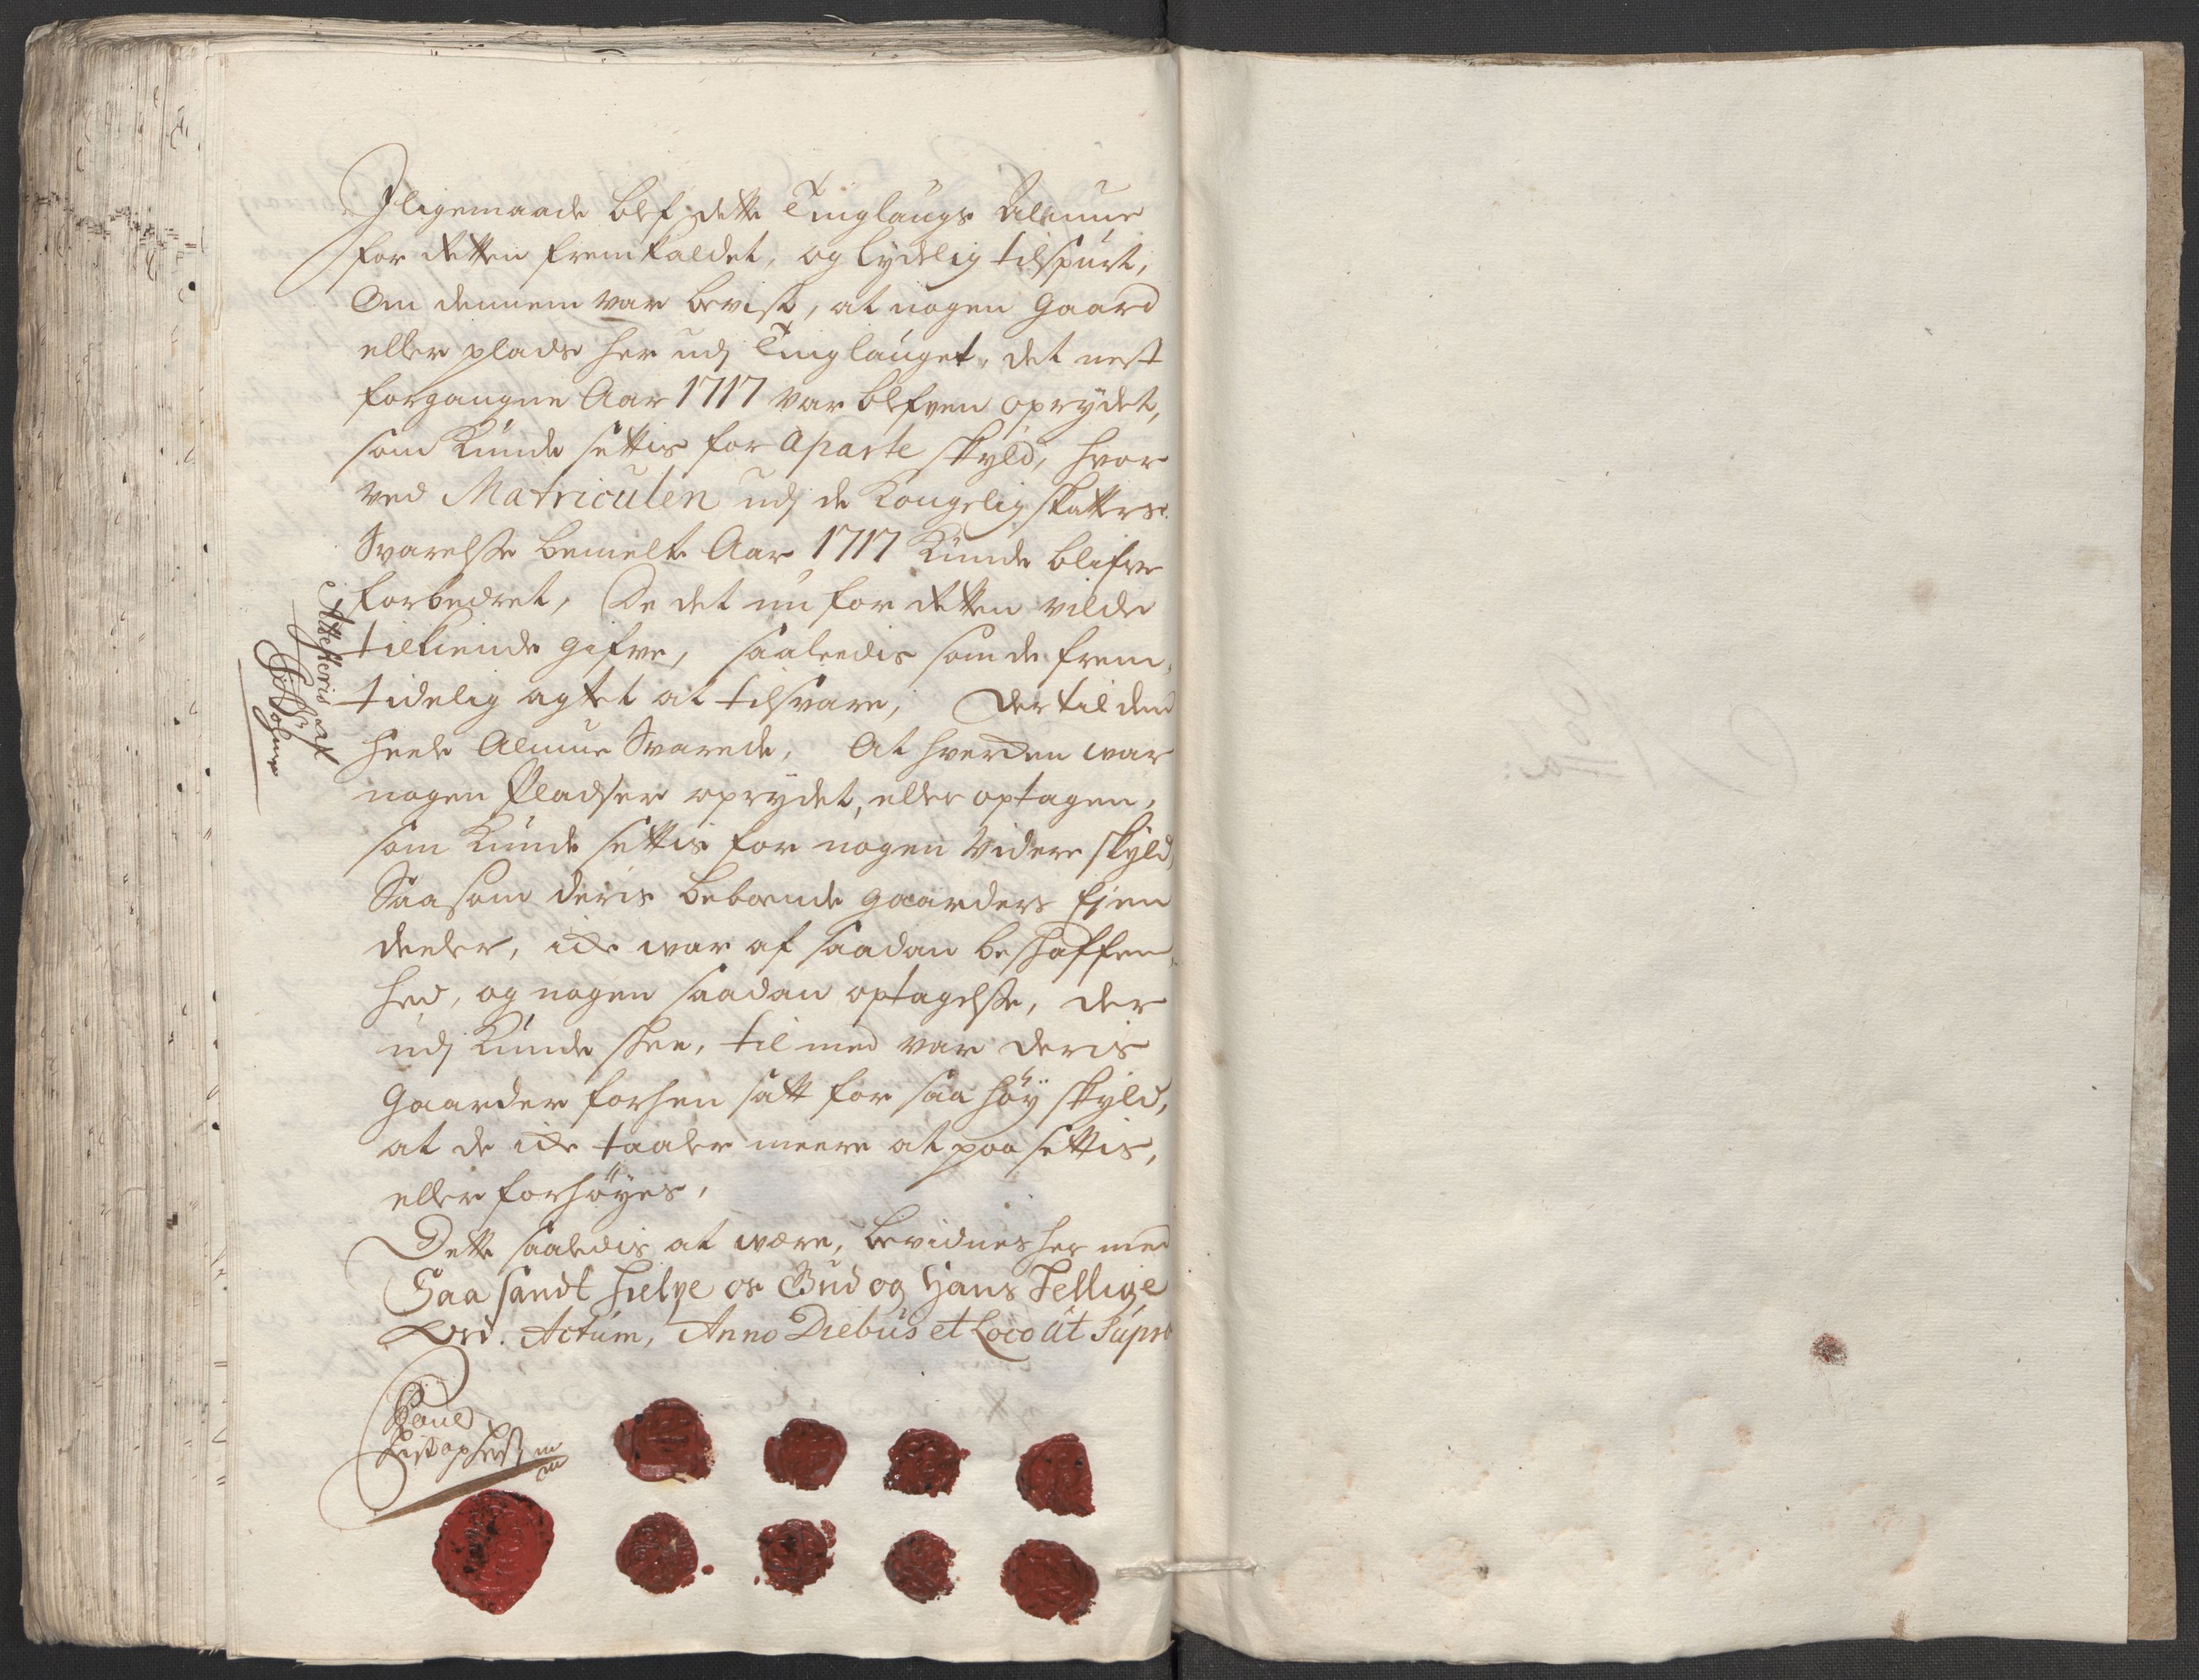 Iligemaade blef dette Tinglaugs Almue
for Retten fremkaldet, og lydelig tilspurt,
Om dennem var bevist, at nogen Gaard
eller plads her udj Tinglauget, det nest
forgangne Aar 1717 var blefven oprydet,
som kunde settis for aparte skyld, hvor
ved Matriculen udj de Kongelig skatters
Svarelsse bemelte Aar 1717 kunde blifve
forbedret, De det nu for Retten vilde
tilkiende gifve, saaleedis som de frem
tidelig agtet at tilsvare, Dertil den
heele Almue Svarede, At hverken war
nogen Pladser oprydet, eller optagen,
som kunde settis for nogen videre skyld,
Saasom deris beboende gaarders Ejen
deeler, icke war af saadan beskaffen
hed, og nogen saadan optagelsse, der
udj kunde skee, til med var deris
Gaarder forhen satt for saa høy skyld,
at de icke taaler meere at paa settis,
eller forhøyes,
Dette saaledis at være, bevidnes her med
Saa sandt hielpe os Gud og Hans Hellige
Ord. Actum, Anno Diebus et Loco Ut Supra
Povel
Christophersen
m
m
Attesteris af